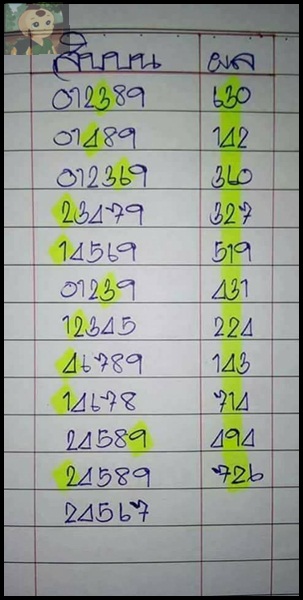 สิบบน ผล
012389 630
01489 142
012369 360
23479 327
14569 519
01239 431
12345 224
46789 143
14678 714
24589 494
24589 726
24567